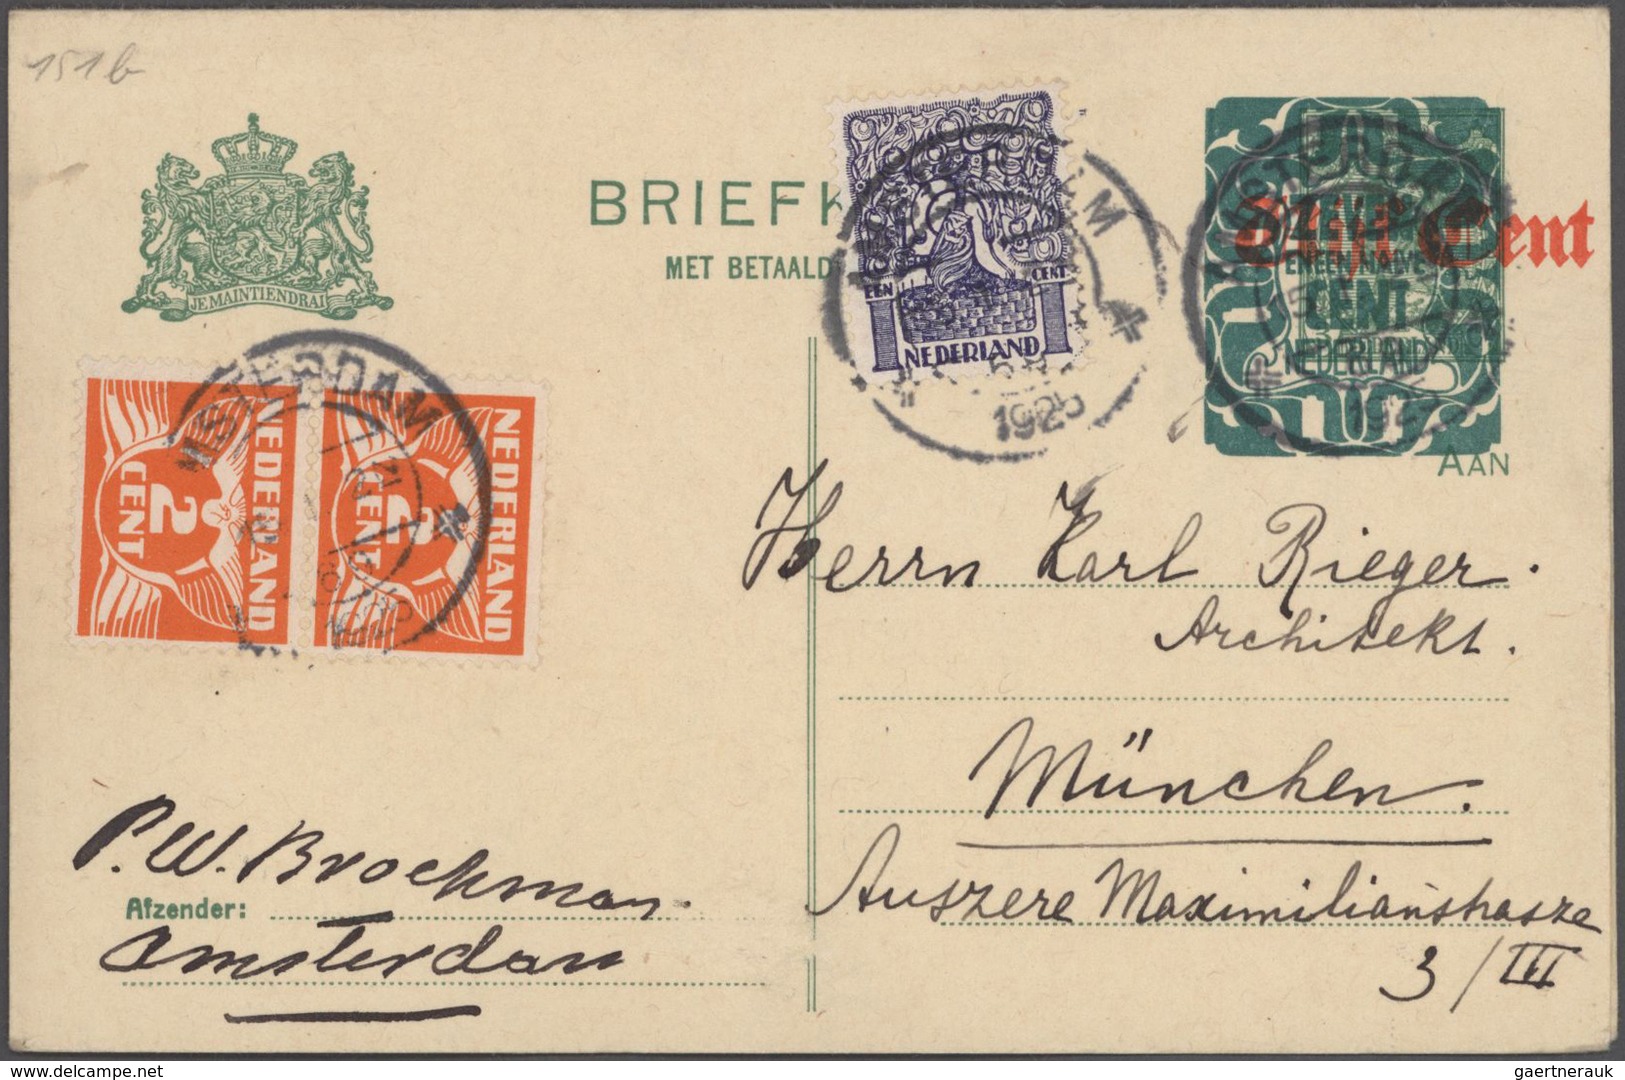 151b
JE MAINTIENDRAI
BRIEFK
MET BETAALD
EEN CENT
1 1
NEDERLAND
AMSTERDAM
1925
Cent
CENT
NEDERLAND
AMSTERDAM
15
192
AAN
NEDERLAND
2
CENT
NEDERLAND
2
CENT
AMSTERDAM
Herrn Karl Rieger.
Architekt.
München.
Auszere Maximilianstrasze
3/III
P. W. Brockman.
Afzender:
Amsterdam
delcampe.net
gaertnerauk